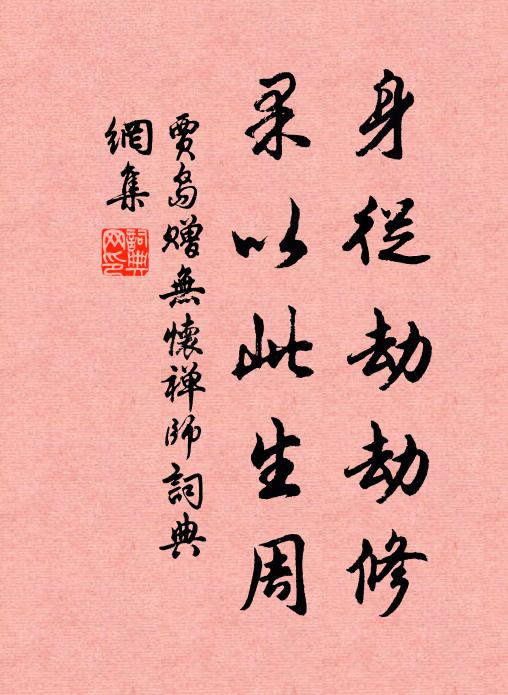 身從劫劫修
果以此生周
賈島贈無懷禅師詞典
網集
詞典
网印